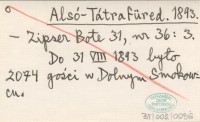 Alsó-Tátrafüred. 1893.
- Zipser Bote 31, nr 36: 3.
Do 31 VIII 1893 było
2074 gości w Dolnym Smokow-
cu.